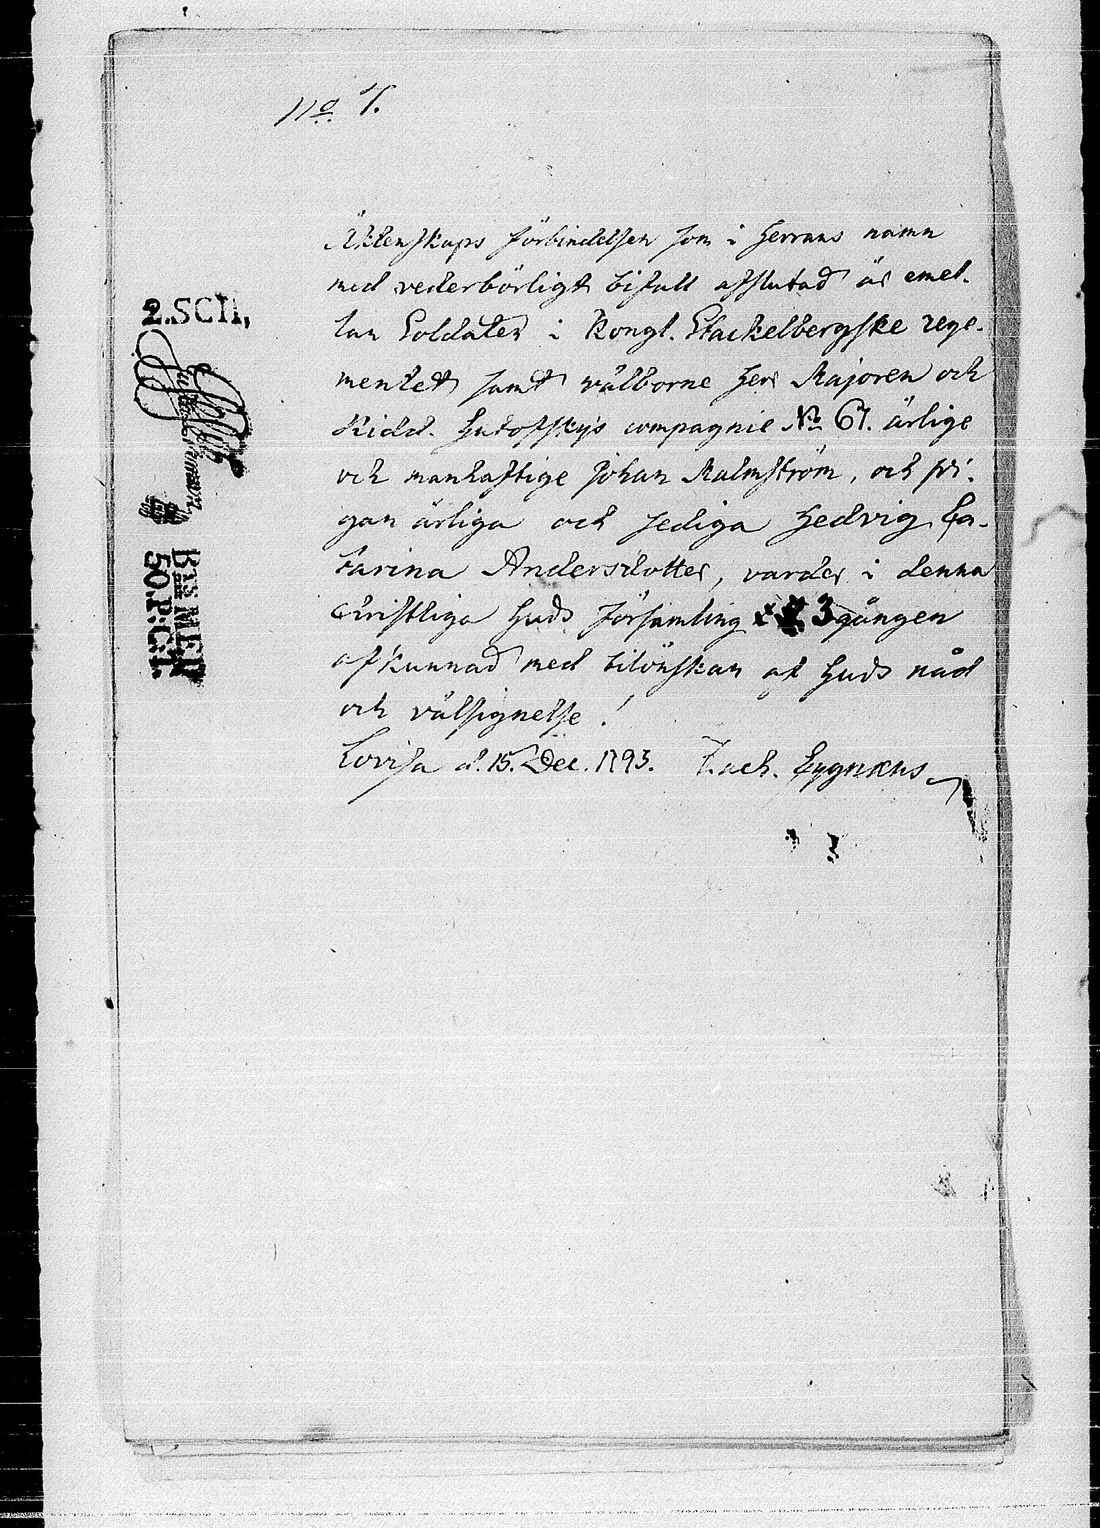 No 7.
Äktenskaps förbindelsen som i Herrans namn
med vederbörligt bifall afslutad är emel-
lan Soldaten i Kongl. Stackelbergske rege-
mentet samt välborne Herr Majoren och
Ridd. compagnie No 67. ärlige
och manhaftige Johan Malmström, och pi-
gan ärliga och sediga Hedvig Ca-
tarina Andersdotter, varder i denna
Christliga Guds församling 3 gången
afkunnad med tilönskan af Guds nåd
och välsignelse!
Lovisa d. 15. Dec. 1793. Zach. Cygnæus
2.SCH,